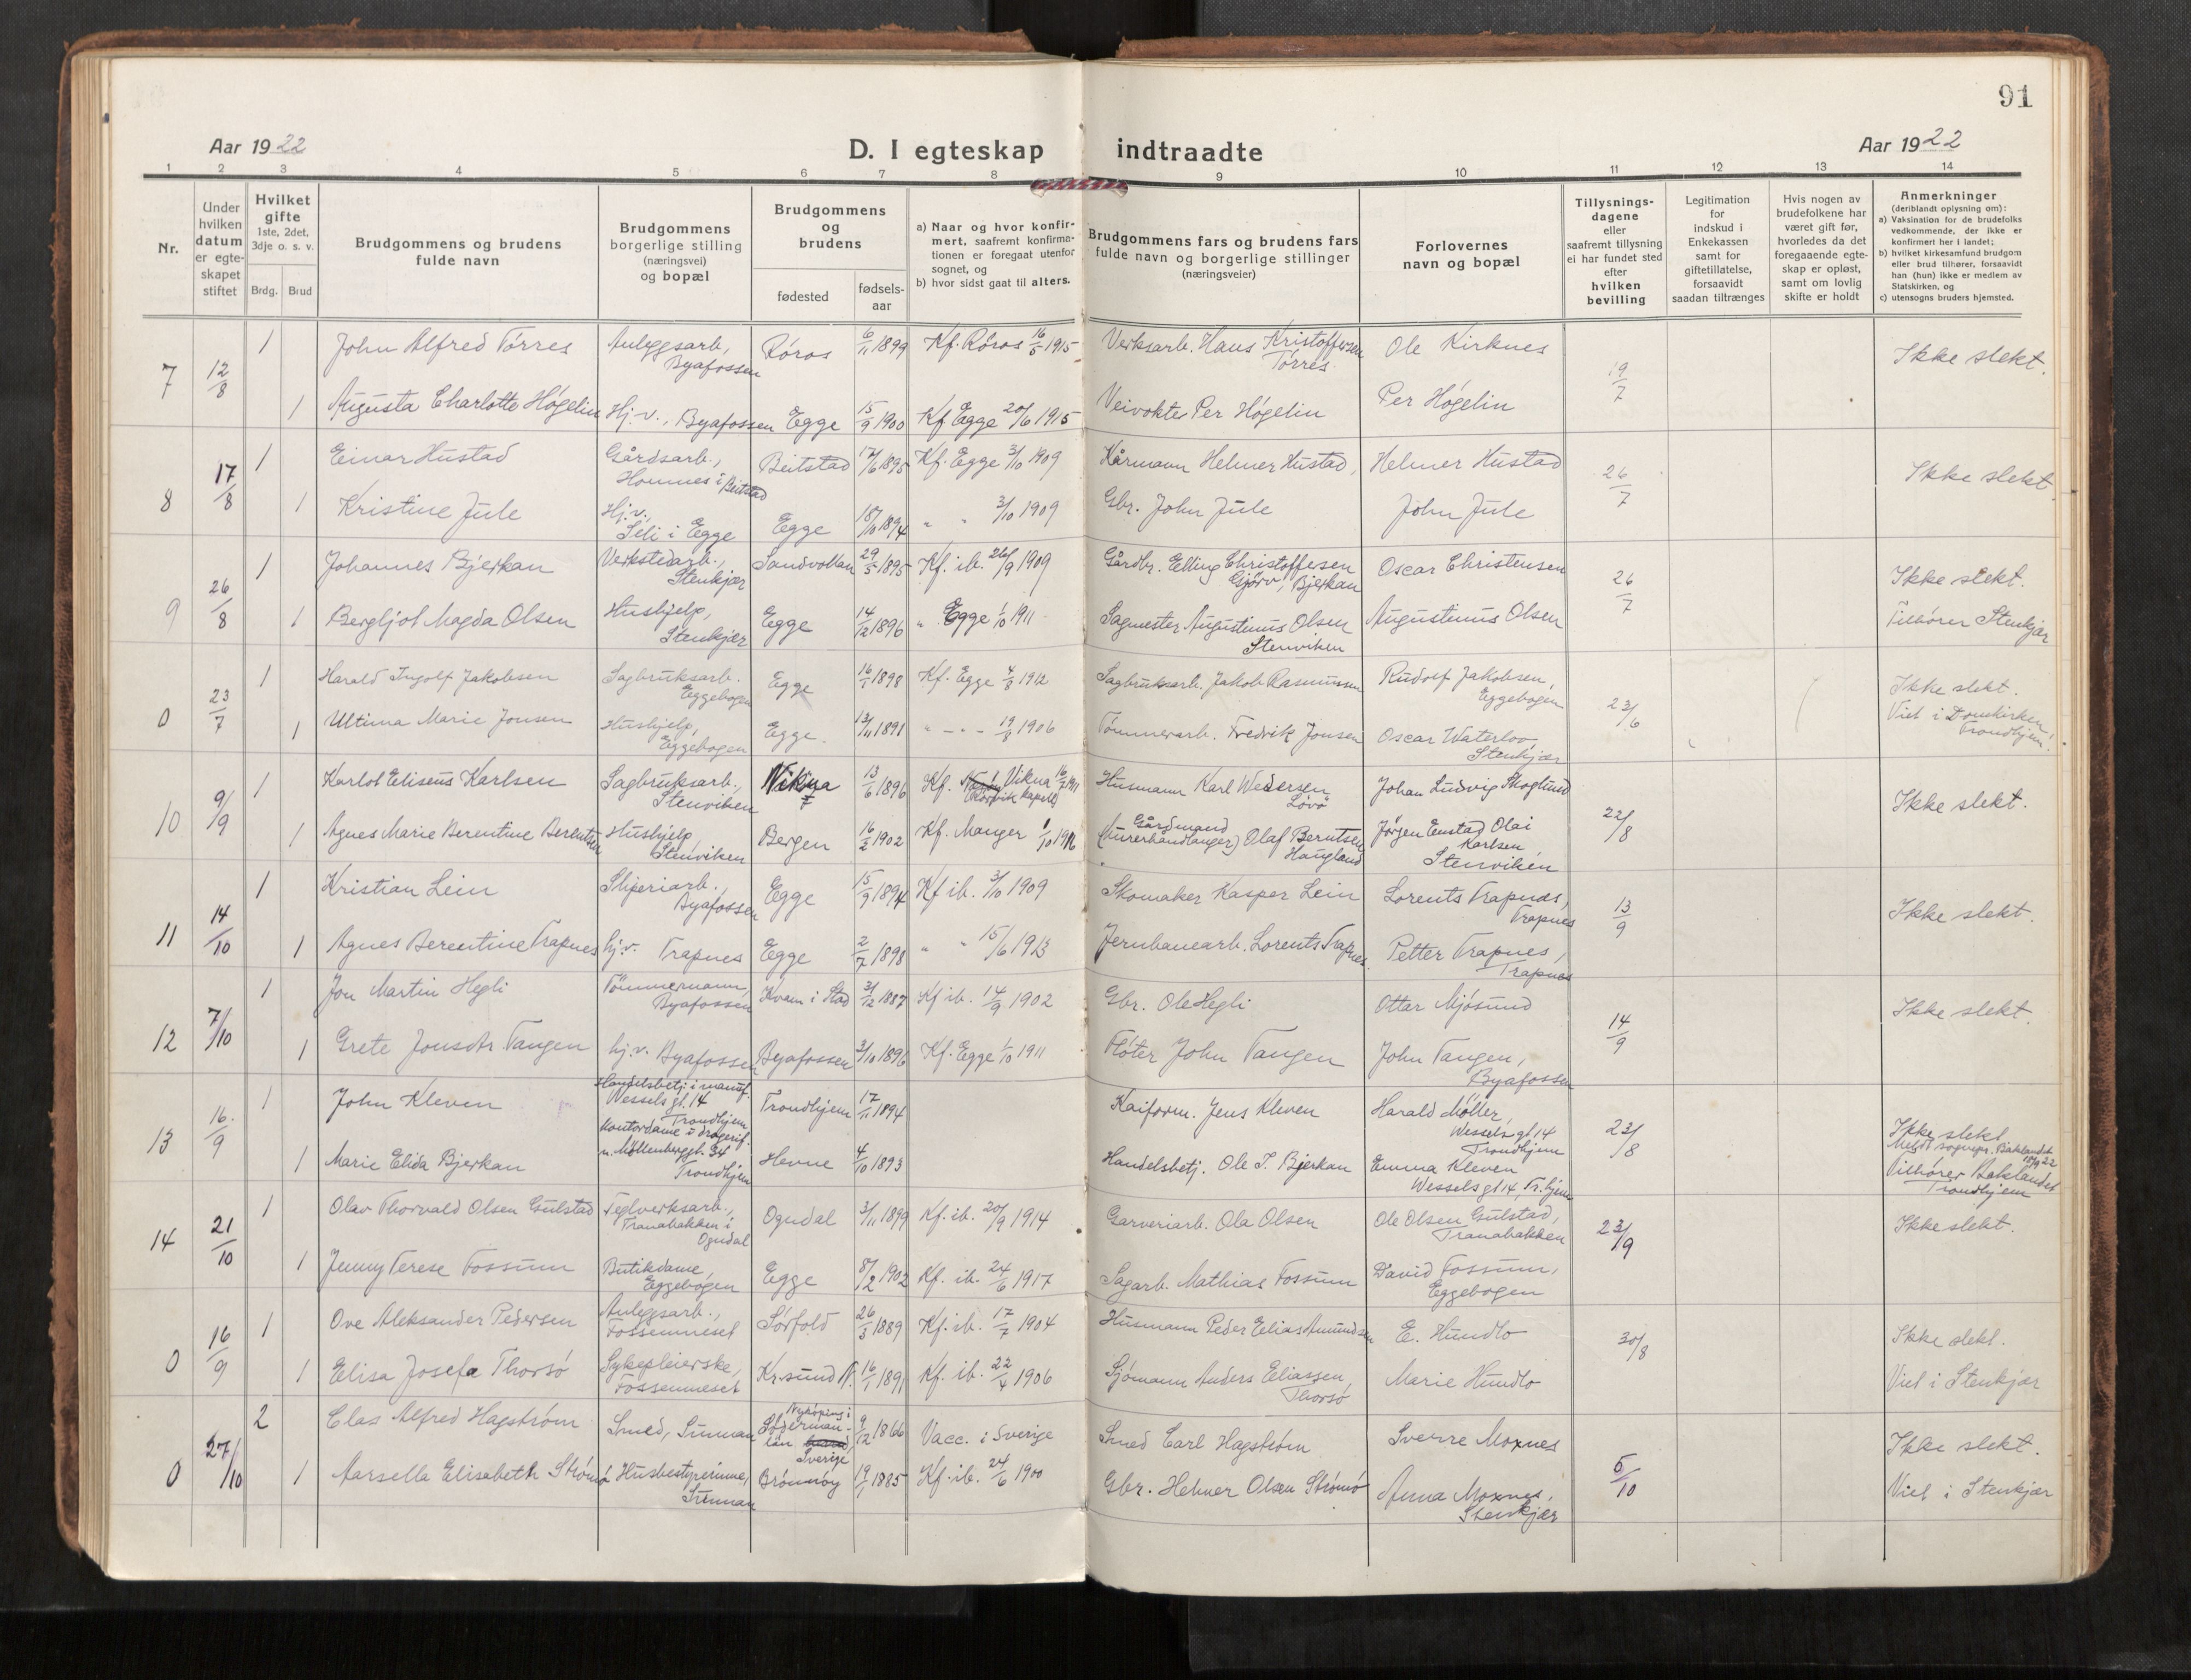 91
Aar 1922
D. I egteskap indtraadte
Aar 1922
1 2 3 4 5 6 7 8 9 10 11 12 13 14
Nr.
Under hvilken datum er egteskapet stiftet
Hvilket gifte 1ste, 2det, 3dje o. s. v.
Brdg. Brud
Brudgommens og brudens fulde navn
Brudgommens borgerlige stilling (næringsvei) og bopæl
Brudgommens og brudens
fødested
fødsels-aar
a) Naar og hvor konfirmert, saafremt konfirmationen er foregaat utenfor sognet, og
b) hvor sidst gaat til alters.
Brudgommens fars og brudens fars fulde navn og borgerlige stillinger (næringsveier)
Forlovernes navn og bopæl
Tillysnings-dagene eller saafremt tillysning ei har fundet sted efter hvilken bevilling
Legitimation for indskud i Enkekassen samt for giftetillatelse, forsaavidt saadan tiltrænges
Hvis nogen av brudefolkene har været gift før, hvorledes da det foregaaende egteskap er opløst, samt om lovlig skifte er holdt
Anmerkninger (deriblandt oplysning om):
a) Vaksination for de brudefolks vedkommende, der ikke er konfirmert her i landet;
b) hvilket kirkesamfund brudgom eller brud tilhører, forsaavidt han (hun) ikke er medlem av Statskirken, og
c) utensogns bruders hjemsted.
7 12/8 1 John Alfred Tørres Anleggsarb., Byafossen Røros 6/11 1899 Kf. Røros 16/5 1915 Verksarb. Hans Kristoffersen Tørres Ole Kirknes 19/7 Ikke slekt.
1 Augusta Charlotte Høgelin Hj.v., Byafossen Egge 15/9 1900 Kf Egge 20/6 1915 Veivokter Per Høgelin Per Høgelin
8 17/8 1 Einar Hustad Gårdsarb., Hommes i Beitstad Beitstad 17/6 1895 Kf. Egge 3/10 1909 Kårmann Helmer Hustad, Helmer Hustad 26/7 Ikke slekt.
1 Kristine Jule Hj.v. Seli i Egge Egge 18/10 1894 " " 3/10 1909 Gbr. John Jule John Jule
9 26/8 1 Johannes Bjerkan Verkstedarb., Stenkjær Sandvollan 29/5 1895 Kf. ib. 26/9 1909 Gårdbr. Elling Christoffersen Gjørv, Bjerkan Oscar Christensen 26/7 Ikke slekt.
1 Bergljot Magda Olsen Hushjelp, Stenkjær Egge 14/12 1896 " Egge 1/10 1911 Sagmester Augustinus Olsen Stenviken Augustinus Olsen Tilhører Stenkjær
0 23/7 1 Harald Ingolf Jakobsen Sagbruksarb. Eggebogen Egge 16/1 1898 Kf. Egge 4/8 1912 Sagbruksarb. Jakob Rasmussen Rudolf Jakobsen, Eggebogen 23/6 Ikke slekt.
1 Ultima Marie Jonsen Hushjelp, Eggebogen Egge 13/11 1891 " - " - 19/8 1906 Tømmerarb. Fredrik Jonsen Oscar Waterloo, Stenkjær Viet i Domkirken Trondhjem!
10 9/9 1 Karlot Eliseus Karlsen Sagbruksarb., Stenviken Vikna 13/6 1896 Kf. Vikna 16/7 1911 (Rørvik kapell) Husmann Karl Wedersen Løvø Johan Ludvig Skoglund 22/8 Ikke slekt.
1 Agnes Marie Berentine Berentsen Hushjelp, Stenviken Bergen 16/2 1902 Kf. Manger 1/10 1916 Gårdmand (murerhandlanger) Olaf Berntsen Haugland Jørgen Enstad Olai Karlsen Stenviken
11 14/10 1 Kristian Lein Sliperiarb., Byafossen Egge 15/9 1894 Kf ib. 3/10 1909 Skomaker Kasper Lein Lorents Trapnes, Trapnes 13/9 Ikke slekt.
1 Agnes Berentine Trapnes hj.v. Trapnes Egge 2/7 1898 " " 15/6 1913 Jernbanearb. Lorents Trapnes. Petter Trapnes, Trapnes
12 7/10 1 Jon Martin Hegli Tömmermann, Byafossen Kvam i Stod 31/12 1887 Kf ib. 14/9 1902 Gbr. Ole Hegli Ottar Mjøsund 14/9 Ikke slekt.
1 Grete Jonsdtr. Tangen hj.v. Byafossen Byafossen 3/10 1896 Kf. Egge 1/10 1911 Fløter John Tangen John Tangen, Byafossen
13 16/9 1 John Kleven Handelsbetj. i manuf. Wessels gt. 14 Trondhjem Trondhjem 17/11 1894 Kaiform. Jens Kleven Harald Møller, Wessels gt 14 Trondhjem 23/8 Ikke slekt
1 Marie Elida Bjerkan Kontordame i drogerif. n. Möllenberggt. 34 Trondhjem Hevne 4/10 1893 Handelsbetj. Ole T. Bjerkan Emma Kleven Wessels gt 14, Tr.hjem Meldt sognepr. Baklandet 18/9 22 Tilhører Baklandet Trondhjem
14 21/10 1 Olav Thorvald Olsen Gulstad Teglverksarb., Tranabakken i Ogndal Ogndal 3/11 1899 Kf. ib. 20/9 1914 Garveriarb. Ola Olsen Ole Olsen Gulstad, Tranabakken 23/9 Ikke slekt.
1 Jenny Terese Fossum Butikdame, Eggebogen Egge 8/2 1902 Kf. ib. 24/6 1917 Sagarb. Mathias Fossum David Fossum, Eggebogen
0 16/9 1 Ove Aleksander Pedersen Anleggsarb., Fossemneset Sørfold 26/3 1889 Kf. ib. 17/7 1904 Husmann Peder Elias Amundsen E. Hundlo 30/8 Ikke slekt.
1 Elisa Josefa Thorsø Sykepleierske, Fossemneset Kr.sund N. 16/1 1891 Kf. ib. 22/4 1906 Sjømann Anders Eliassen, Thorsø Marie Hundlo Viet i Stenkjær
0 27/10 2 Clas Alfred Hagstrøm Smed, Sunnan Nykøping i Søderman-län Sverige 9/12 1866 Vacc. i Sverige Smed Carl Hagstrøm Sverre Moxnes 5/10 Ikke slekt.
1 Marsella Elisabeth Strømø Husbestyrerinne, Sunnan Brønnøy 19/1 1885 Kf. ib. 24/6 1900 Gbr. Helmer Olsen Strømø Anna Moxnes, Stenkjær Viet i Stenkjær